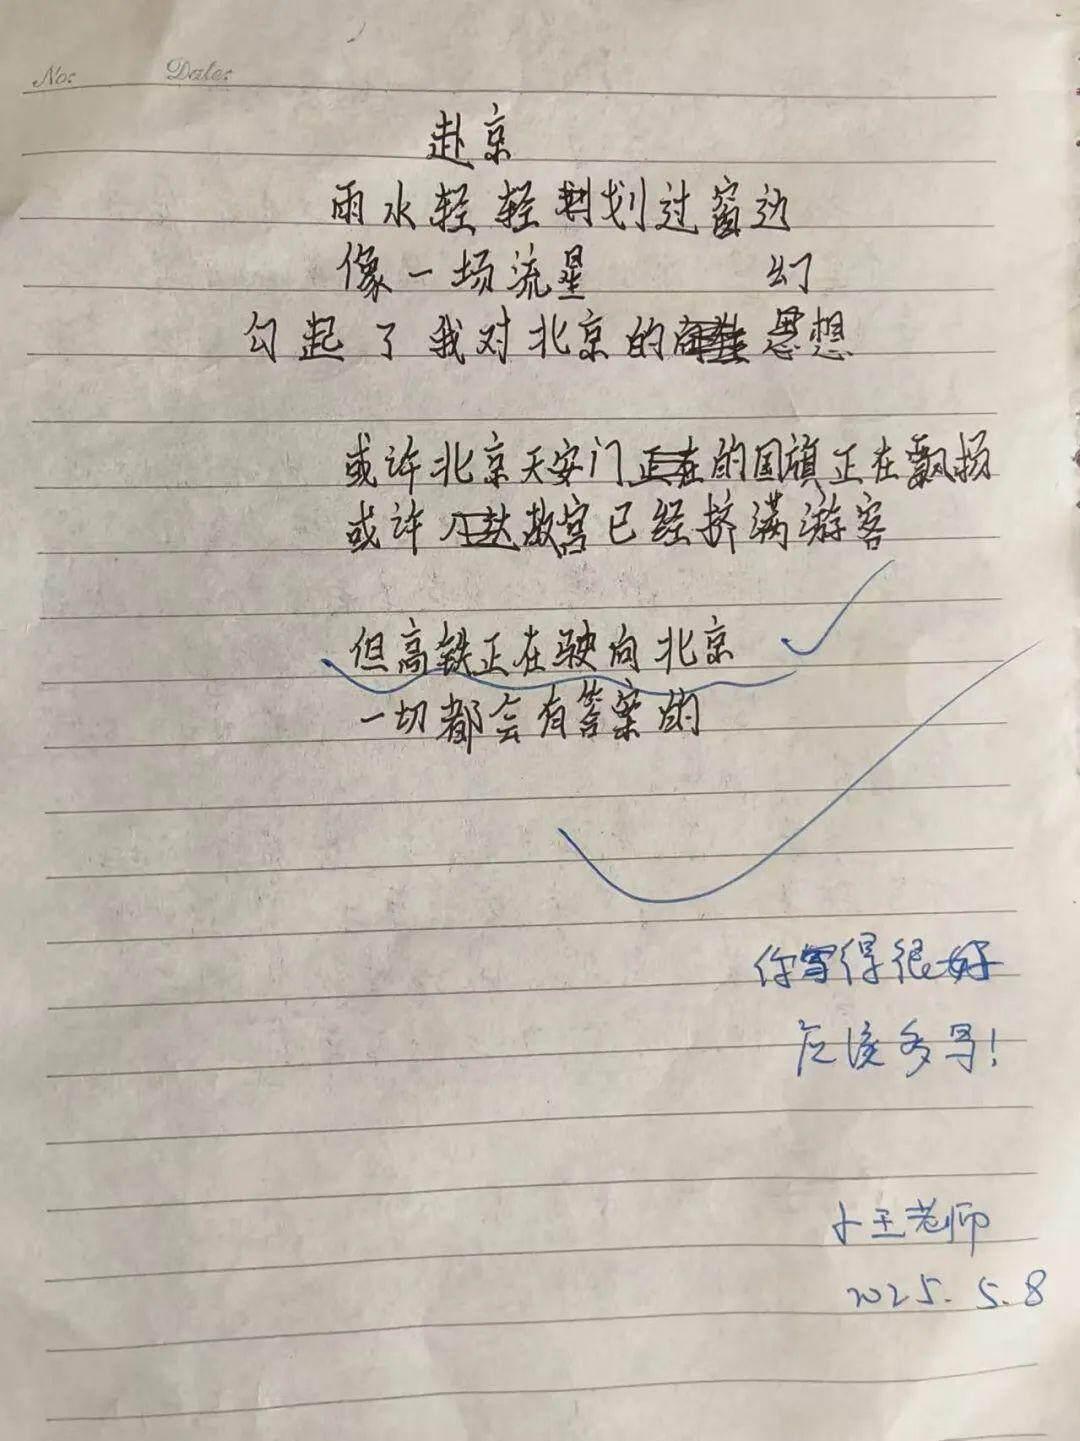 No: Date:
赴京
雨水轻轻划过窗边
像一场流星
幻
勾起了我对北京的思想
或许北京天安门的国旗正在飘扬
或许故宫已经挤满游客
但高铁正在驶向北京
一切都会有答案的
你写得很好
应该多写!
小王老师
2025.5.8